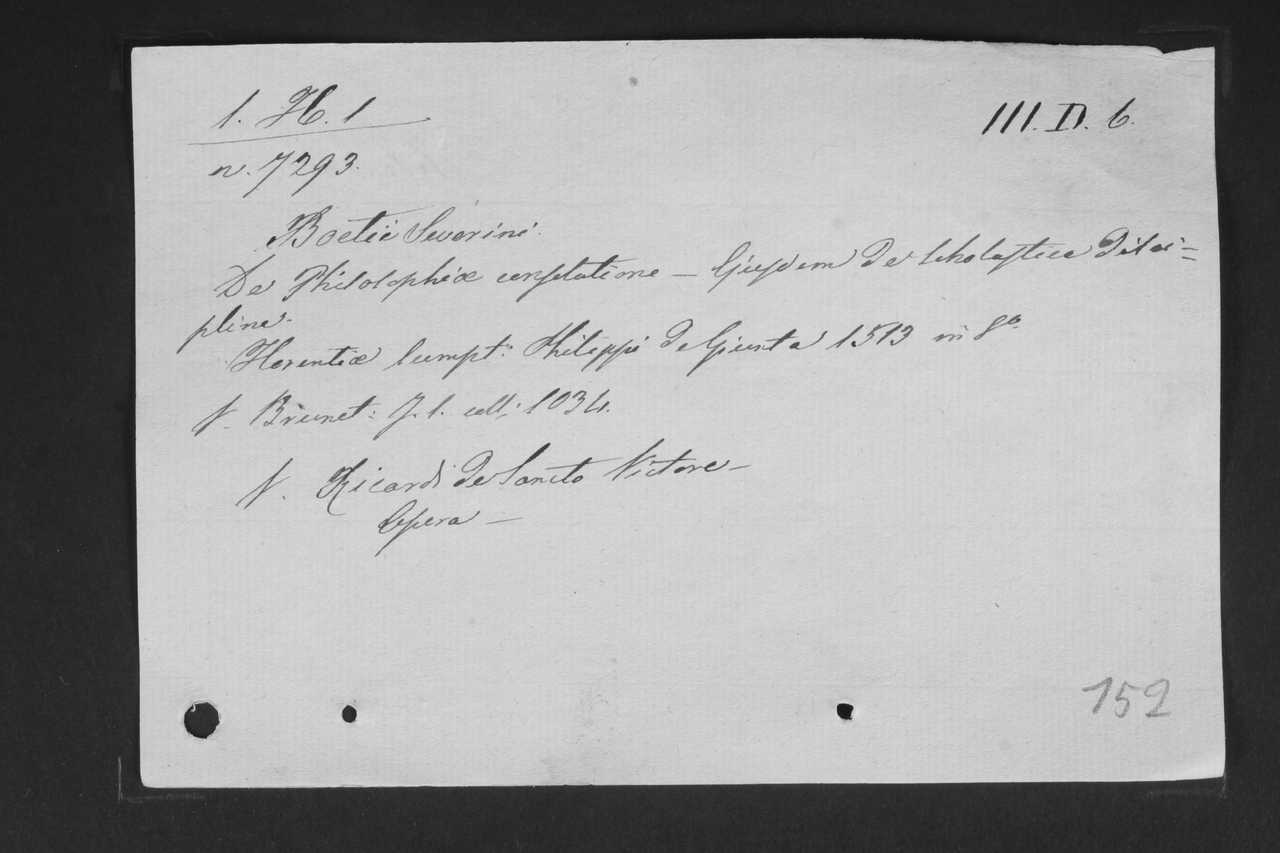 1. H. 1
III. D. 6.
n. 7293.
Boetii Severini.
De Philosophiæ consolatione — Ejusdem de scholastica disci=
plina.
Florentiæ sumpt: Philippi de Giunta 1513 in 8º
V. Brunet: T. 1. coll: 1034.
V. Ricardi de Sancto Victore —
Opera —
152